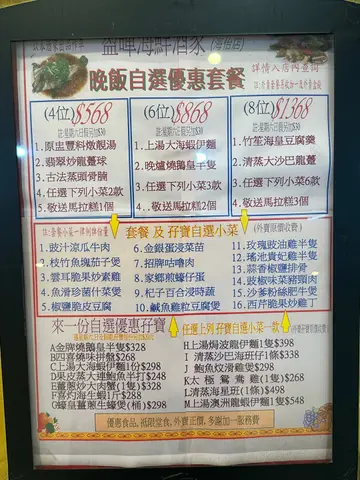 盈暉海鮮酒家
詳情入店內查詢
晚飯自選優惠套餐
(4位)$568
註:星期六日假另加$30
1.原盅豐料燉靚湯
2.翡翠炒龍躉球
3.古法蒸頭骨腩
4.任選下列小菜2款
5.敬送馬拉糕1個
(6位)$868
註:星期六日假另加$30
1.上湯大海蝦伊麵
2.晚爐燒鵝皇半隻
3.任選下列小菜3款
4.敬送馬拉糕1個
(8位)$1368
註:星期六日假另加$30
1.竹笙海皇豆腐羹
2.清蒸大沙巴龍躉
3.任選下列小菜6個
4.敬送馬拉糕1個
套餐 及 孖寶自選小菜
(外賣原價收費)
1.豉汁涼瓜牛肉
2.枝竹魚塊茄子煲
3.雲耳脆果炒素雞
4.魚滑珍菌什菜煲
5.椒鹽脆皮豆腐
6.金銀蛋浸菜苗
7.招牌咕嚕肉
8.家鄉煎蠔仔蛋
9.杞子百合浸時蔬
10.鹹魚雞粒豆腐煲
11.玫瑰豉油雞半隻
12.瑤池貴妃雞半隻
13.蒜香椒鹽排骨
14.豉椒味菜豬頭肉
15.沙爹粉絲肥牛煲
16.西芹脆果炒雞丁
來一份自選優惠孖寶
任選上列孖寶自選小菜一款
A金牌燒鵝皇半隻$328
B四喜燒味拼盤$268
C上湯大海蝦伊麵1份$298
E薑蔥炒大肉蟹(1隻)$328
F喜灼海生蝦1斤$288
G蠔皇薑蔥生蠔煲(桶)$298
H上湯焗波龍伊麵1隻$398
I 清蒸沙巴海班仔1條$338
J 鮑魚炆滑雞煲$298
K太極鴛鴦雞(1隻)$268
L清蒸海星班(1條)$498
M上湯澳洲龍蝦伊麵1隻$548
優惠食品, 祗限堂食, 外賣正價, 多謝加一服務費